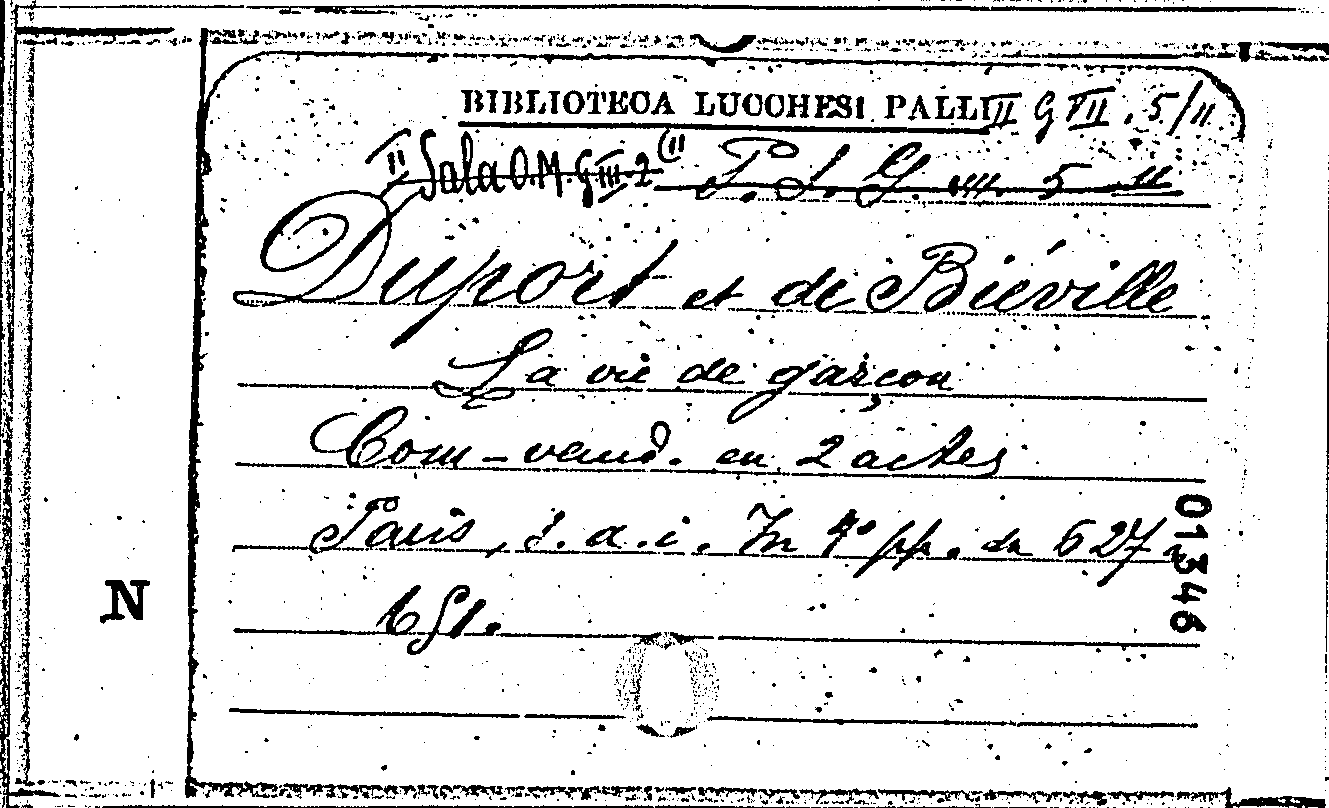 BIBLIOTECA LUCCHESI PALLI II G VII. 5/11
II Sala O.M. G III 2 (11 P. S. G. 5 11
Duport et de Biéville
La vie de garçon
Com-vaud. en 2 actes
Paris, s. a. i. In 4° pp. da 627 a
651.
01346
N